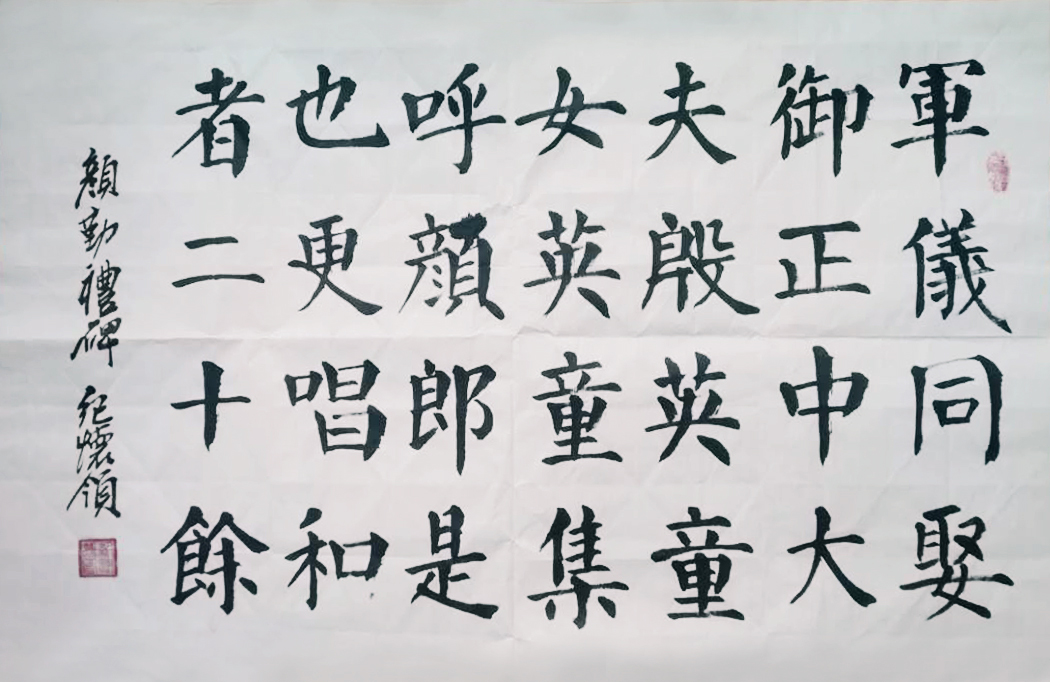 軍儀同娶
御正中大
夫殷英童
女英童集
呼顏郎是
也更唱和
者二十餘
顏勤禮碑 紀懷領